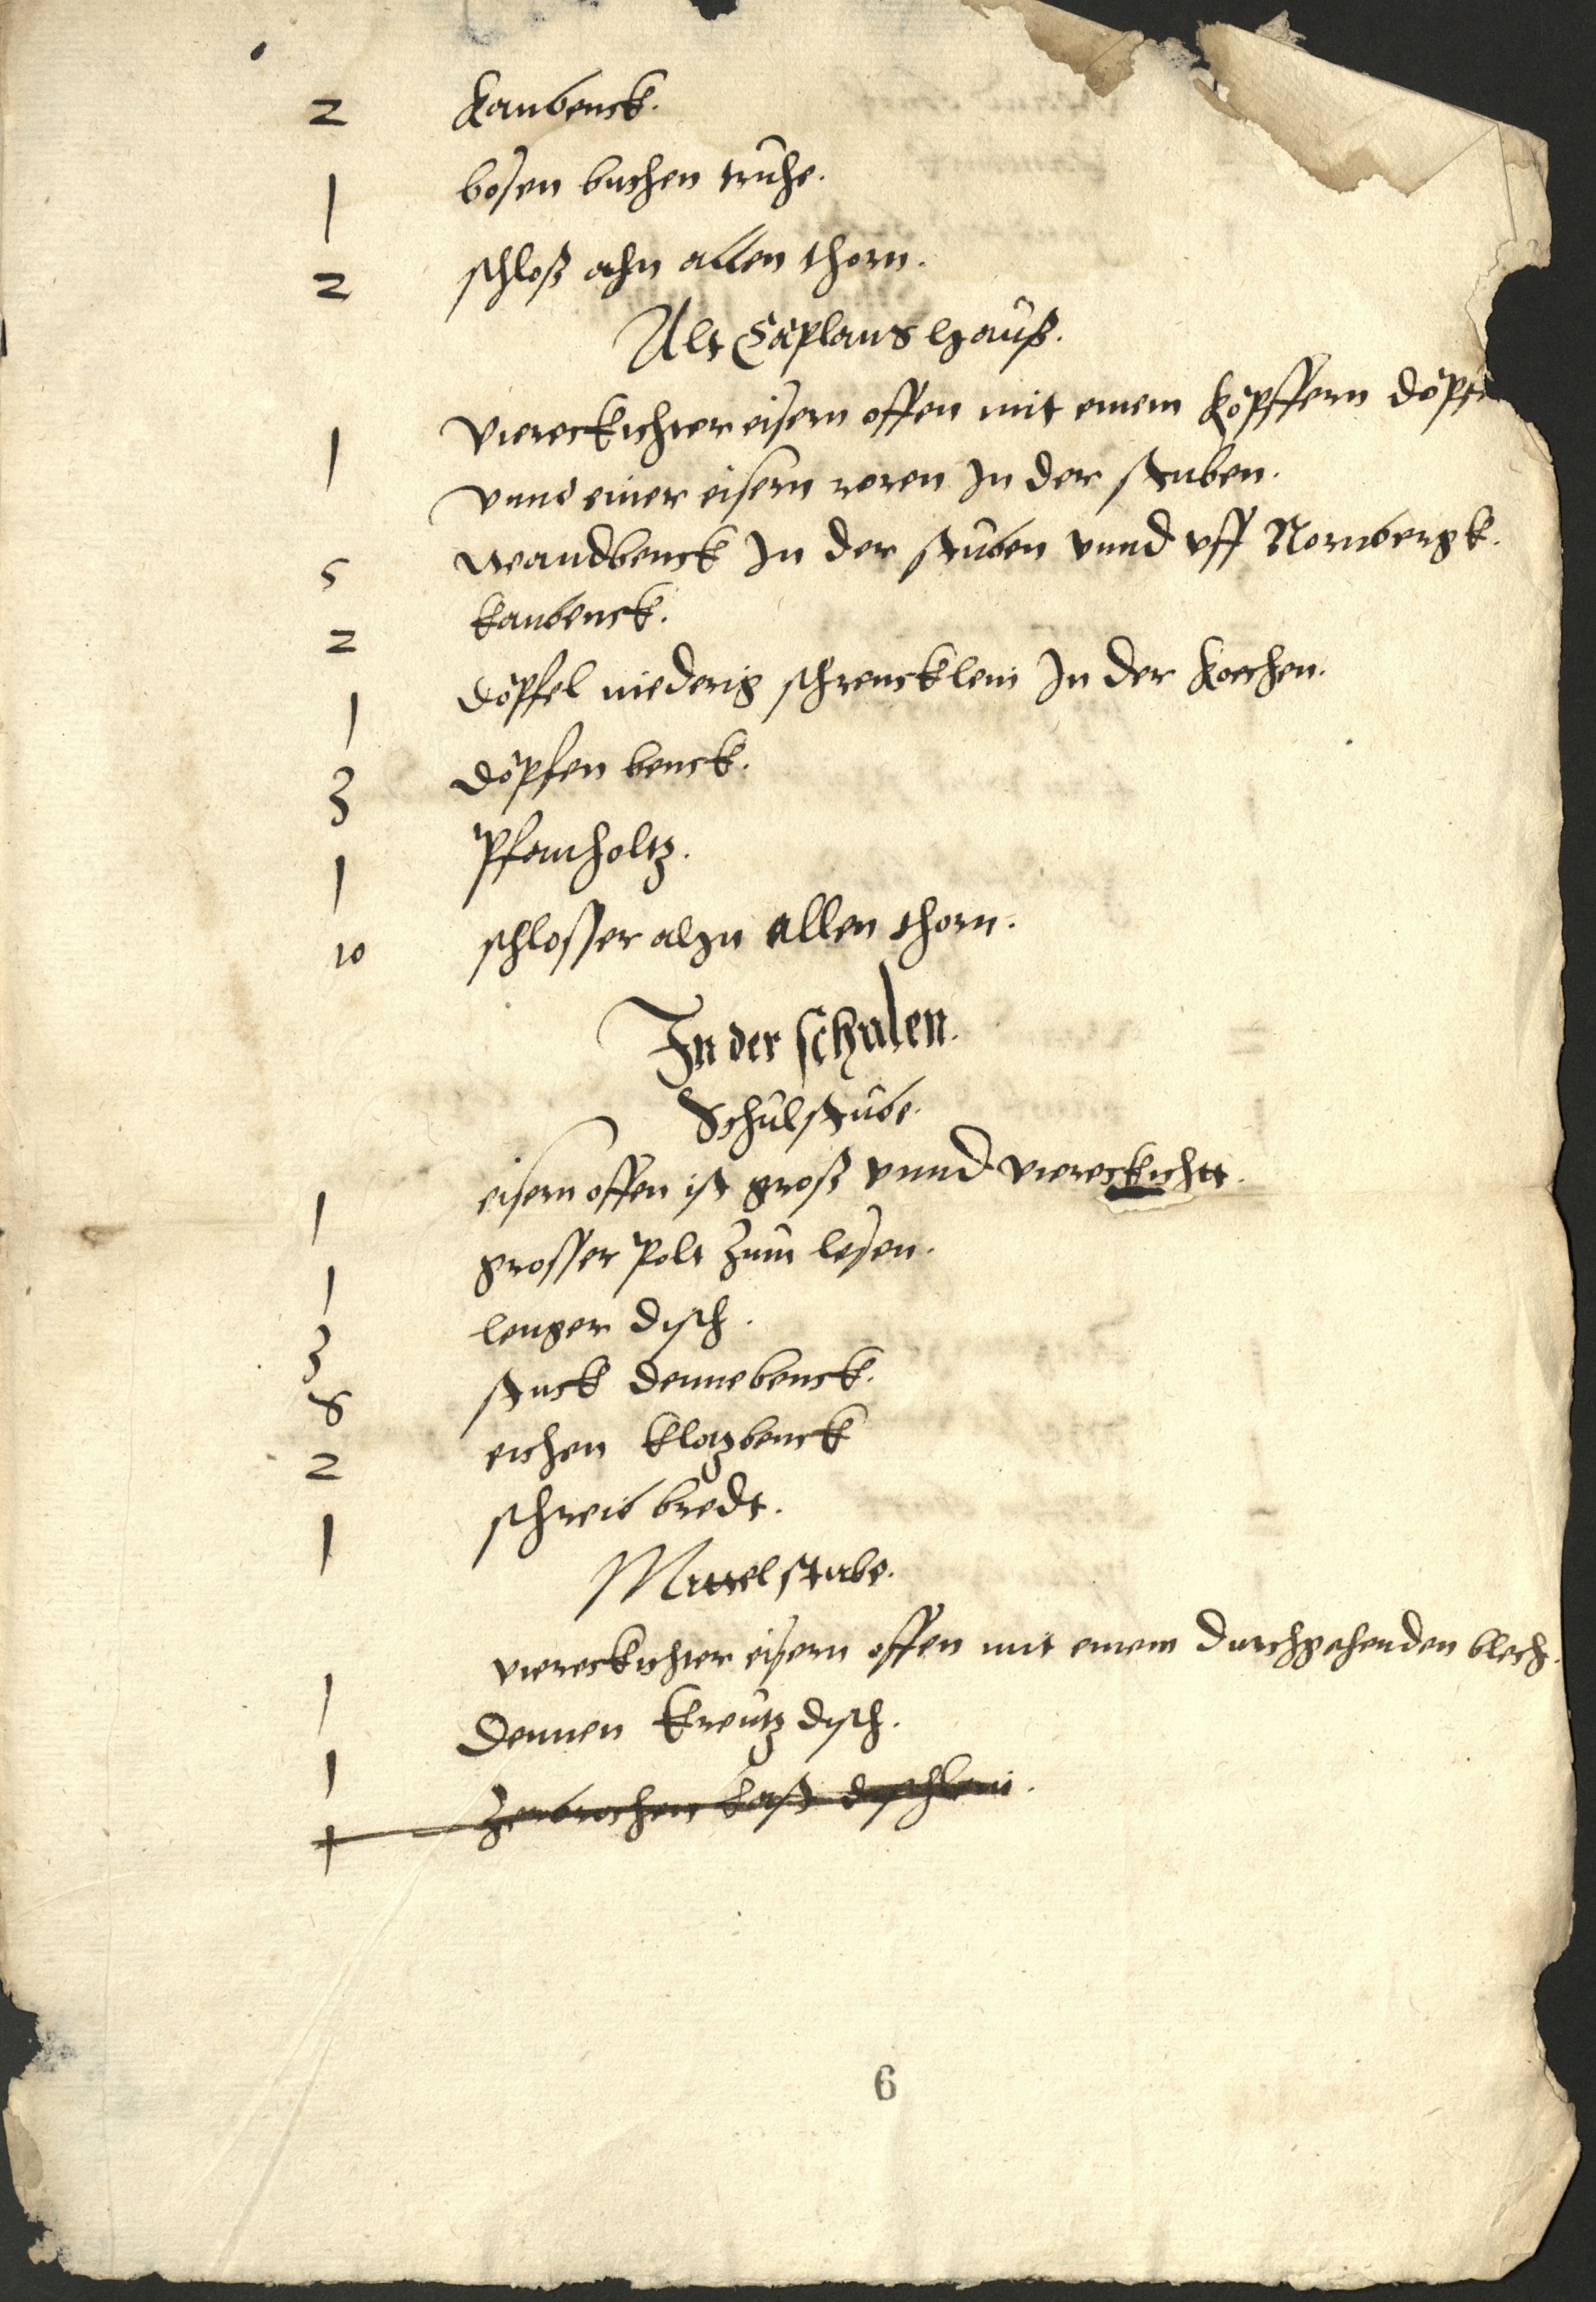 2 Kanbenck.
1 bosen buchen truhe.
2 schloß ahn allen thorn.
Alt Caplans hauß.
1 viereckichter eisern offen mit einem köpffern döpf
vnnd einer eisern roren In der stuben.
5 wandbenck In der stuben vnnd vff Nornbergk.
2 kanbenck.
1 döpfel niederig schrencklein In der kochen.
3 döpfen benck.
1 Pfanholtz.
10 schlosser ahn allen thorn.
In der schulen.
Schulstube.
1 eisern offen ist groß vnnd viereckichtt.
1 grosser Polt zum lesen.
3 lenger disch.
8 stuck dennebenck.
2 eichen klotzbenck
1 schreib bredt.
Mittel stube.
1 viereckichter eisern offen mit einem durchgehenden blech.
1 dennen kreutz disch.
1 zerbrochen kast dischlein.
6